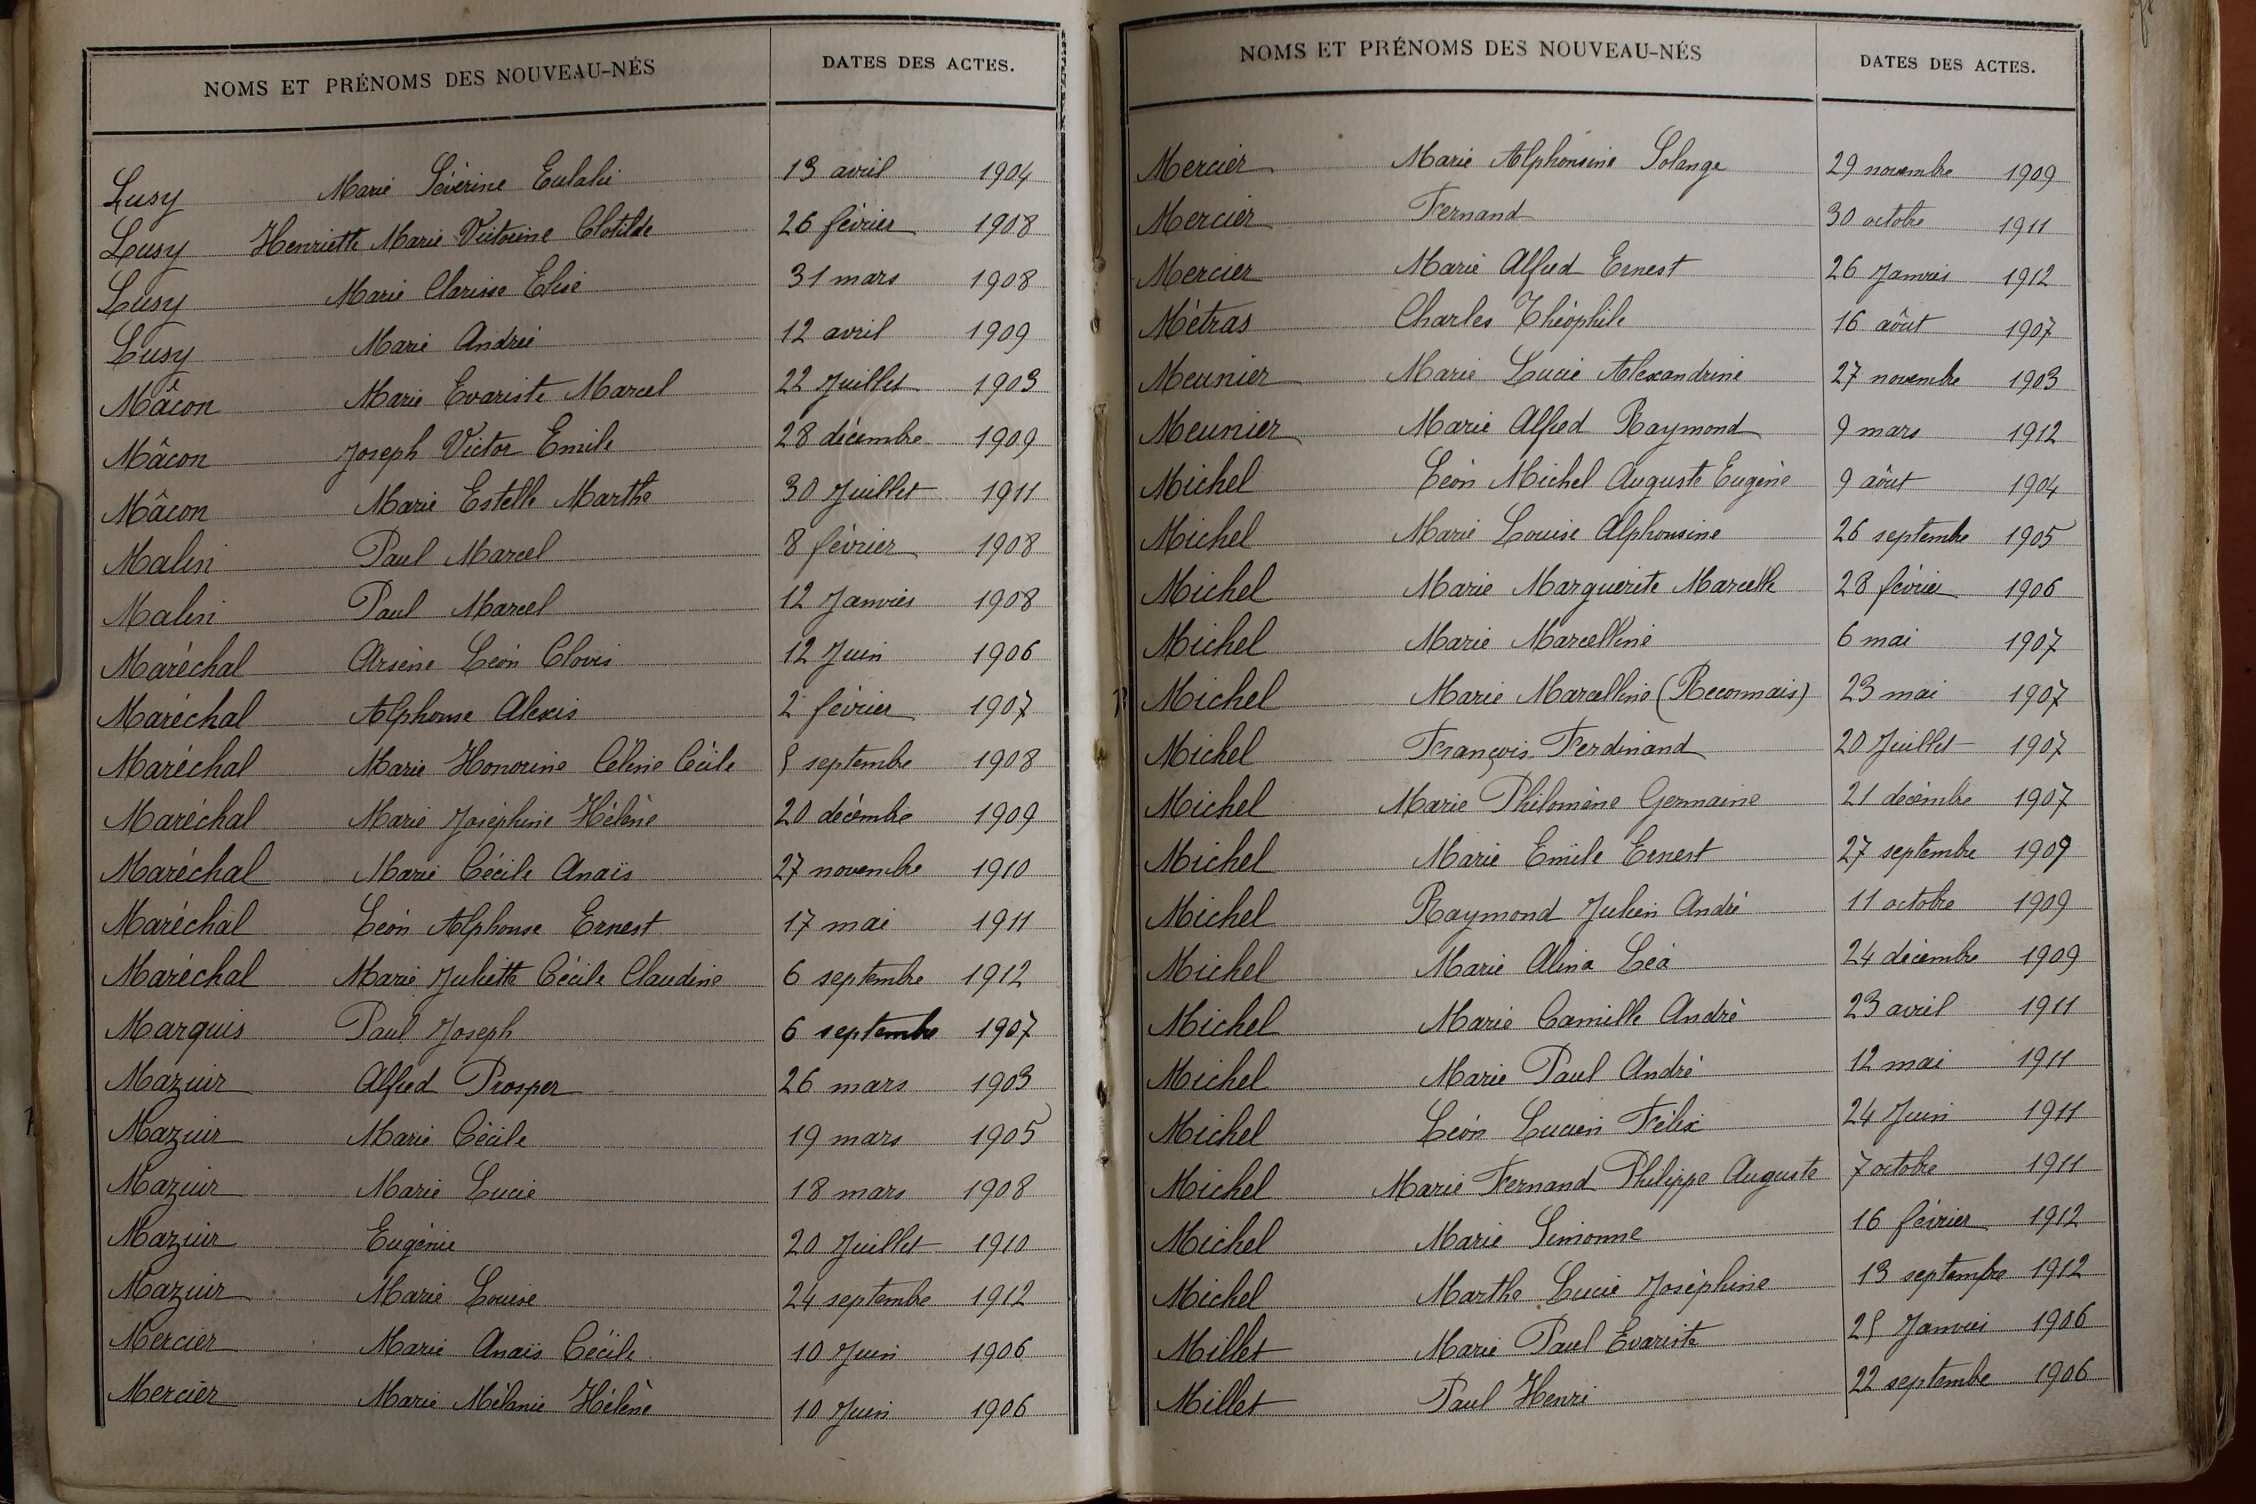 NOMS ET PRÉNOMS DES NOUVEAU-NÉS DATES DES ACTES.
Lusy Marie Séverine Eulalie 13 avril 1904
Lusy Henriette Marie Victorine Clotilde 26 février 1908
Lusy Marie Clarisse Elise 31 mars 1908
Lusy Marie Andrée 12 avril 1909
Mâcon Marie Evariste Marcel 22 Juillet 1903
Mâcon Joseph Victor Emile 28 décembre 1909
Mâcon Marie Estelle Marthe 30 Juillet 1911
Malin Paul Marcel 8 février 1908
Malin Paul Marcel 12 Janvier 1908
Maréchal Arsène Léon Clovis 12 Juin 1906
Maréchal Alphonse Alexis 2 février 1907
Maréchal Marie Honorine Céline Cécile 5 septembre 1908
Maréchal Marie Joséphine Hélène 20 décembre 1909
Maréchal Marie Cécile Anaïs 27 novembre 1910
Maréchal Léon Alphonse Ernest 17 mai 1911
Maréchal Marie Juliette Cécile Claudine 6 septembre 1912
Marquis Paul Joseph 6 septembre 1907
Mazuir Alfred Prosper 26 mars 1903
Mazuir Marie Cécile 19 mars 1905
Mazuir Marie Lucie 18 mars 1908
Mazuir Eugénie 20 Juillet 1910
Mazuir Marie Louise 24 septembre 1912
Mercier Marie Anaïs Cécile 10 Juin 1906
Mercier Marie Mélanie Hélène 10 Juin 1906
NOMS ET PRÉNOMS DES NOUVEAU-NÉS DATES DES ACTES.
Mercier Marie Alphonsine Solange 29 novembre 1909
Mercier Fernand 30 octobre 1911
Mercier Marie Alfred Ernest 26 Janvier 1912
Métras Charles Théophile 16 aôut 1907
Meunier Marie Lucie Alexandrine 27 novembre 1903
Meunier Marie Alfred Raymond 9 mars 1912
Michel Léon Michel Auguste Eugène 9 aôut 1904
Michel Marie Louise Alphonsine 26 septembre 1905
Michel Marie Marguerite Marcelle 28 février 1906
Michel Marie Marcelline 6 mai 1907
Michel Marie Marcelline (Reconnais) 23 mai 1907
Michel François Ferdinand 20 Juillet 1907
Michel Marie Philomène Germaine 21 décembre 1907
Michel Marie Emile Ernest 27 septembre 1909
Michel Raymond Julien André 11 octobre 1909
Michel Marie Alina Léa 24 décembre 1909
Michel Marie Camille André 23 avril 1911
Michel Marie Paul André 12 mai 1911
Michel Léon Lucien Félix 24 Juin 1911
Michel Marie Fernand Philippe Auguste 7 octobre 1911
Michel Marie Simonne 16 février 1912
Michel Marthe Lucie Joséphine 13 septembre 1912
Millet Marie Paul Evariste 25 Janvier 1906
Millet Paul Henri 22 septembre 1906